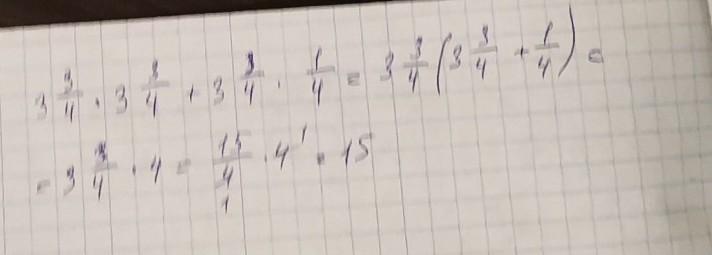 3 3/4 · 3 3/4 + 3 3/4 · 1/4 = 3 3/4 (3 3/4 + 1/4) =
= 3 3/4 · 4 = 15/4 1 · 4 1 = 15